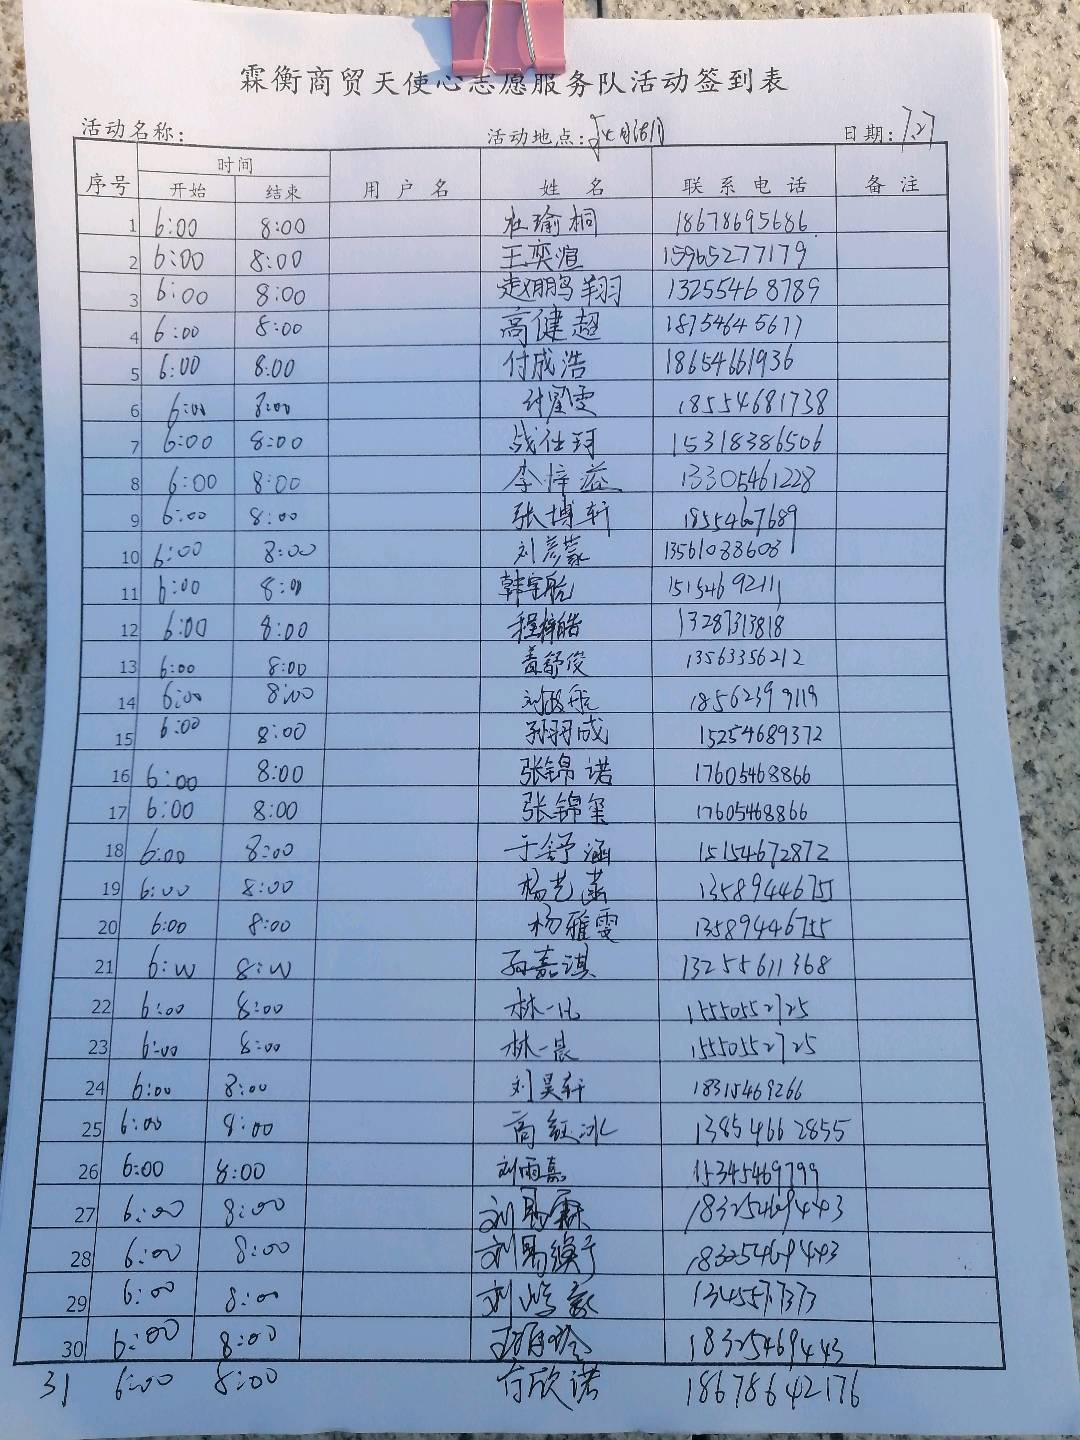 霖衡商贸天使心志愿服务队活动签到表
活动名称: 活动地点: 日期: 7.27
序号 时间 用户名 姓名 联系电话 备注
开始 结束
1 6:00 8:00 杜瑜桐 18678695686
2 6:00 8:00 王奕渲 15965277179
3 6:00 8:00 赵鹏翔 13255468789
4 6:00 8:00 高健超 18754645677
5 6:00 8:00 付成浩 18654661936
6 6:00 8:00 18554681738
7 6:00 8:00 战仕珂 15318386506
8 6:00 8:00 李梓益 13305461228
9 6:00 8:00 张博轩 18554607689
10 6:00 8:00 刘彦蒙 13561088608
11 6:00 8:00 韩宇航 15154692111
12 6:00 8:00 程梓皓 13287313818
13 6:00 8:00 袁舒俊 13563356212
14 6:00 8:00 18562399119
15 6:00 8:00 孙羽成 15254689372
16 6:00 8:00 张锦诺 17605468866
17 6:00 8:00 张锦玺 17605468866
18 6:00 8:00 于舒涵 15154672872
19 6:00 8:00 杨艺菡 13589446755
20 6:00 8:00 杨雅雯 13589446755
21 6:00 8:00 孙嘉淇 13255611368
22 6:00 8:00 林一凡 15550552725
23 6:00 8:00 林一晨 15550552725
24 6:00 8:00 刘昊轩 18315469266
25 6:00 8:00 商钰冰 13854662855
26 6:00 8:00 刘雨嘉 15345469799
27 6:00 8:00 刘易霖 18325469443
28 6:00 8:00 刘易缤宁 18325469443
29 6:00 8:00 刘鸿毅 13455577373
30 6:00 8:00 18325469443
31 6:00 8:00 付欣诺 18678642176